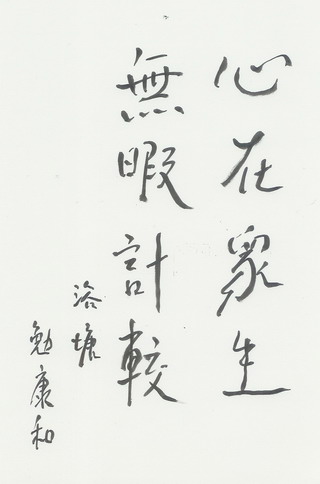 心在眾生
無暇計較
洛塘
勉康和